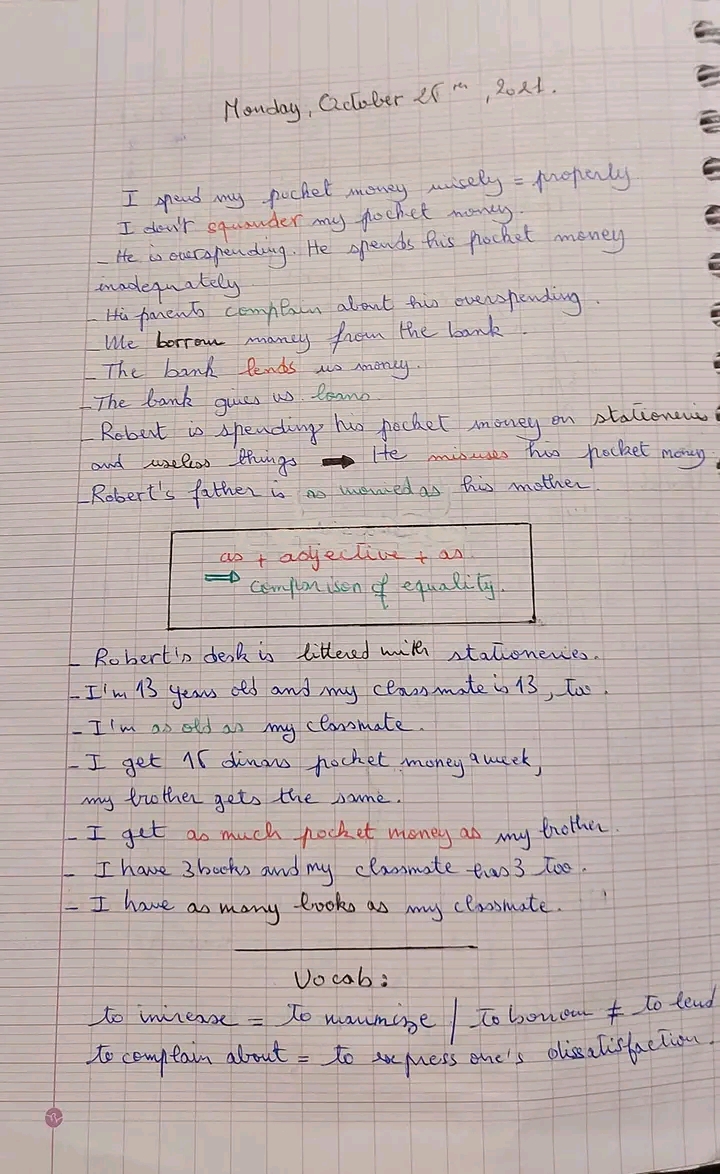 Monday, October 25th, 2021.
I spend my pocket money wisely = properly
I don't squander my pocket money.
- He is overspending. He spends his pocket money
inadequately
- His parents complain about his overspending.
- We borrow money from the bank.
- The bank lends us money.
- The bank gives us loans
- Robert is spending his pocket money on stationeries
and useless things → He misuses his pocket money
- Robert's father is as worried as his mother.
as + adjective + as
⇒ comparison of equality.
- Robert's desk is littered with stationeries.
- I'm 13 years old and my classmate is 13, too.
- I'm as old as my classmate.
- I get 15 dinars pocket money a week,
my brother gets the same.
- I get as much pocket money as my brother.
- I have 3 books and my classmate has 3 too.
- I have as many books as my classmate.
Vocab:
to increase = to maximize / to borrow ≠ to lend
to complain about = to express one's dissatisfaction.